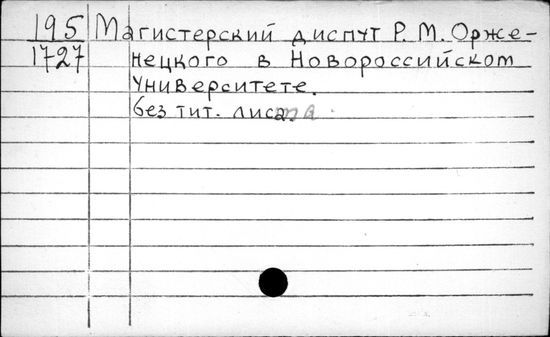 195 Магистерский диспут Р. М. Орже-
1727 нецкого в Новороссийском
Университете.
без тит. листа.